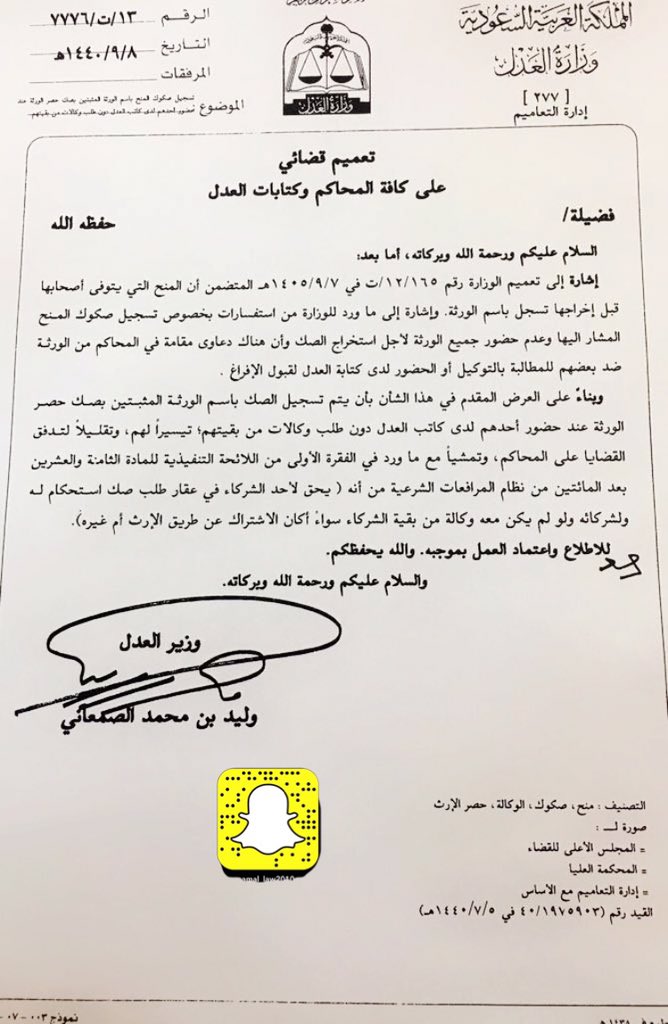 المملكة العربية السعودية
وزارة العدل
[ ٢٧٧ ]
إدارة التعاميم
وزارة العدل
الرقم ١٣/ت/٧٧٧٦
التاريخ ١٤٤٠/٩/٨هـ
المرفقات
الموضوع تسجيل صكوك المنح باسم الورثة المثبتين بصك حصر الورثة عند
حضور أحدهم لدى كاتب العدل دون طلب وكالات من بقيتهم.
تعميم قضائي
على كافة المحاكم وكتابات العدل
فضيلة/ حفظه الله
السلام عليكم ورحمة الله وبركاته، أما بعد:
إشارة إلى تعميم الوزارة رقم ١٢/١٦٥/ت في ١٤٠٥/٩/٧هـ المتضمن أن المنح التي يتوفى أصحابها
قبل إخراجها تسجل باسم الورثة. وإشارة إلى ما ورد للوزارة من استفسارات بخصوص تسجيل صكوك المنح
المشار اليها وعدم حضور جميع الورثة لأجل استخراج الصك وأن هناك دعاوى مقامة في المحاكم من الورثة
ضد بعضهم للمطالبة بالتوكيل أو الحضور لدى كتابة العدل لقبول الإفراغ .
وبناءً على العرض المقدم في هذا الشأن بأن يتم تسجيل الصك باسم الورثة المثبتين بصك حصر
الورثة عند حضور أحدهم لدى كاتب العدل دون طلب وكالات من بقيتهم؛ تيسيراً لهم، وتقليلاً لتدفق
القضايا على المحاكم، وتمشياً مع ما ورد في الفقرة الأولى من اللائحة التنفيذية للمادة الثامنة والعشرين
بعد المائتين من نظام المرافعات الشرعية من أنه ( يحق لأحد الشركاء في عقار طلب صك استحكام له
ولشركائه ولو لم يكن معه وكالة من بقية الشركاء سواءً أكان الاشتراك عن طريق الإرث أم غيره).
للاطلاع واعتماد العمل بموجبه. والله يحفظكم.
والسلام عليكم ورحمة الله وبركاته.
وزير العدل
وليد بن محمد الصمعاني
التصنيف : منح، صكوك، الوكالة، حصر الإرث
صورة لـــ :
= المجلس الأعلى للقضاء
= المحكمة العليا
= إدارة التعاميم مع الأساس
القيد رقم (٤٠/١٩٧٥٩٠٣ في ١٤٤٠/٧/٥هـ)
نموذج ٠٠٣ - ٠٧